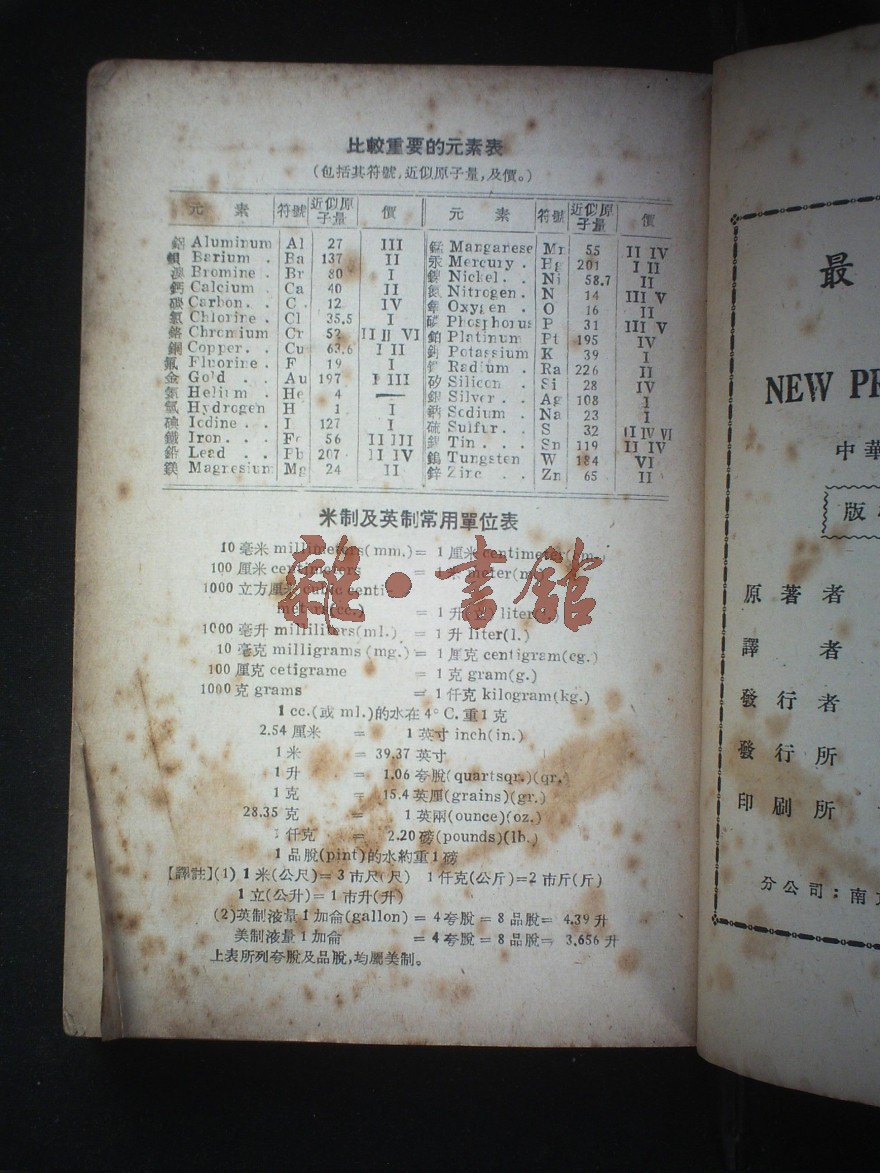 比較重要的元素表
(包括其符號,近似原子量,及價。)
元 素 符號 近似原子量 價 元 素 符號 近似原子量 價
鋁 Aluminum Al 27 III 錳 Manganese Mn 55 II IV
鋇 Barium . Ba 137 II 汞 Mercury . Hg 201 I II
溴 Bromine . Br 80 I 鎳 Nickel . . Ni 58.7 II
鈣 Calcium . Ca 40 II 氮 Nitrogen . N 14 III V
碳 Carbon. . C . 12 IV 氧 Oxygen . O 16 II
氯 Chlorine . Cl 35.5 I 磷 Phosphorus P 31 III V
鉻 Chromium Cr 52 II III VI 鉑 Platinum Pt 195 IV
銅 Copper. . Cu 63.6 I II 鉀 Potassium K 39 I
氟 Fluorine . F 19 I 鐳 Radium . Ra 226 II
金 Gold . . Au 197 I III 矽 Silicon . Si 28 IV
氦 Helium . He 4 — 銀 Silver . . Ag 108 I
氫 Hydrogen H 1 I 鈉 Sodium . Na 23 I
碘 Iodine . . I 127 I 硫 Sulfur. . S 32 II IV VI
鐵 Iron. . . Fe 56 II III 錫 Tin . . . Sn 119 II IV
鉛 Lead . . Pb 207 II IV 鎢 Tungsten W 184 VI
鎂 Magnesium Mg 24 II 鋅 Zinc . . Zn 65 II
米制及英制常用單位表
10 毫米 millimeters(mm.)= 1 厘米 centimeter(cm.)
100 厘米 centimeters = 1 米 meter(m.)
1000 立方厘米 cubic centi-
meters(cc.) = 1 升 liter
1000 毫升 milliliters(ml.) = 1 升 liter(l.)
10 毫克 milligrams (mg.) = 1 厘克 centigram(cg.)
100 厘克 cetigrame = 1 克 gram(g.)
1000 克 grams = 1 仟克 kilogram(kg.)
1 cc.(或 ml.)的水在 4° C. 重 1 克
2.54 厘米 = 1 英寸 inch(in.)
1 米 = 39.37 英寸
1 升 = 1.06 夸脫(quartsqr.)(qr.)
1 克 = 15.4 英厘(grains)(gr.)
28.35 克 = 1 英兩(ounce)(oz.)
1 仟克 = 2.20 磅(pounds)(lb.)
1 品脫(pint)的水約重 1 磅
【譯註】(1) 1 米(公尺)= 3 市尺(尺) 1 仟克(公斤)=2 市斤(斤)
1 立(公升)= 1 市升(升)
(2)英制液量 1 加侖(gallon) = 4 夸脫 = 8 品脫= 4.39 升
美制液量 1 加侖 = 4 夸脫 = 8 品脫= 3.656 升
上表所列夸脫及品脫,均屬美制。
雜·書館
最
NEW PR
中華
版
原著者
譯者
發行者
發行所
印刷所
分公司:南